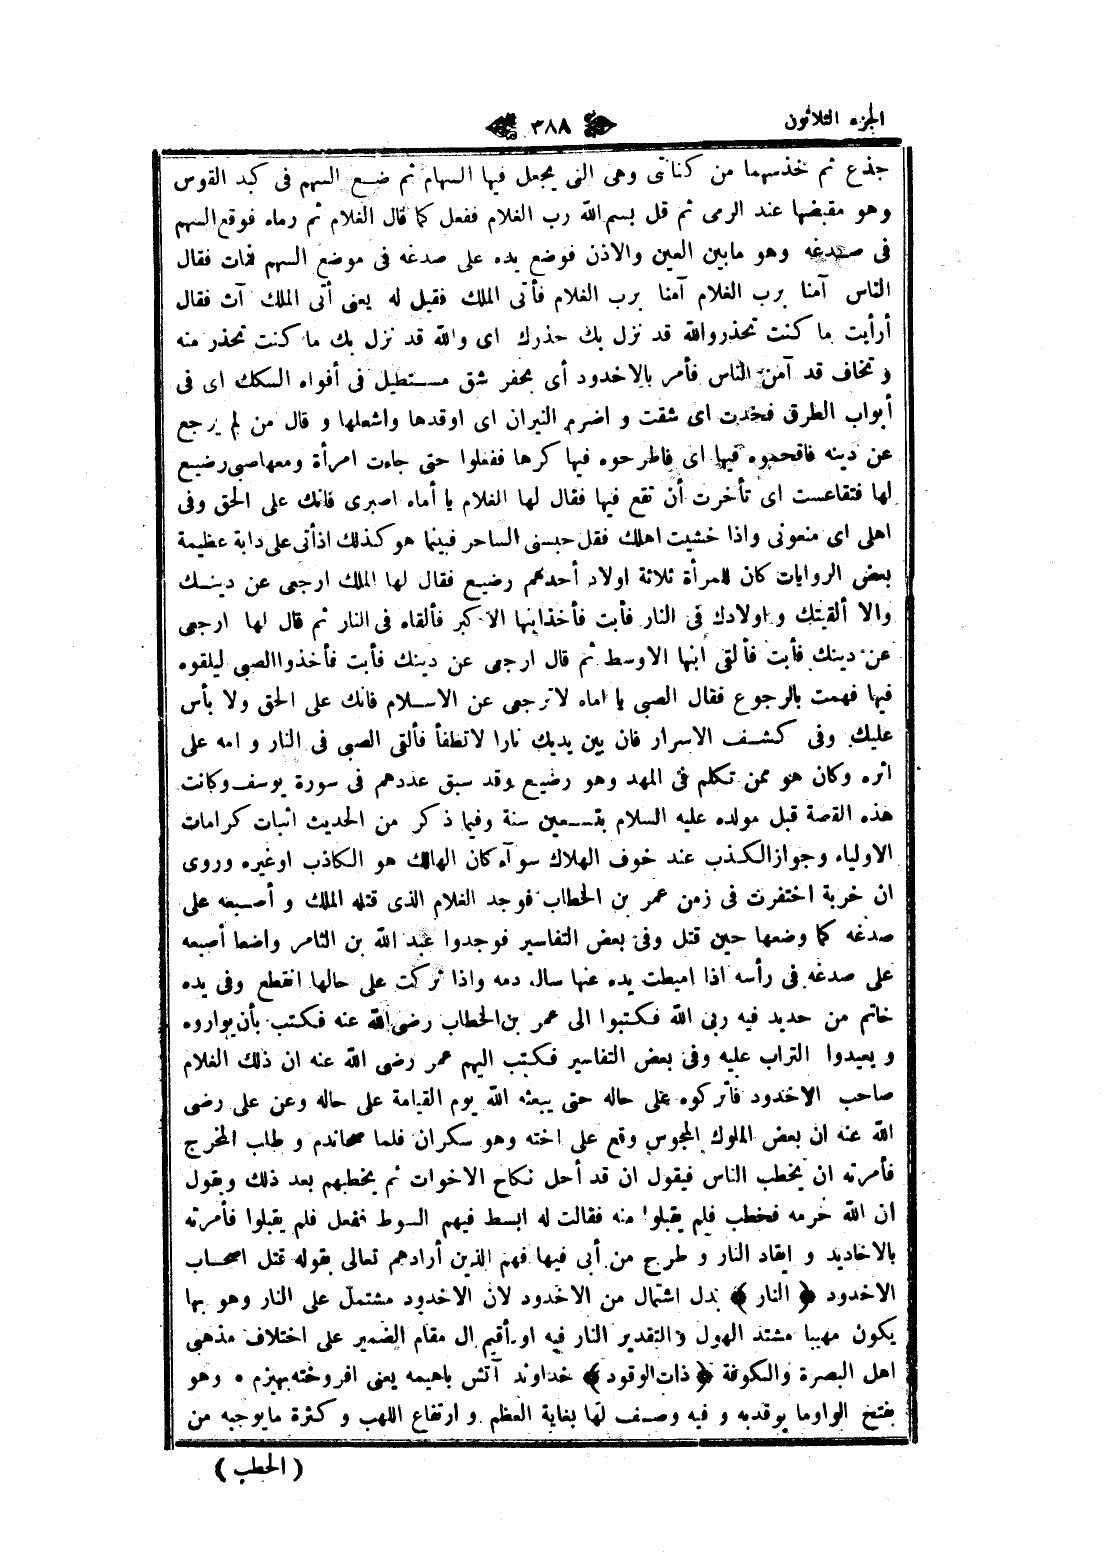 الجزء الثلاثون
٣٨٨
جذع ثم خذسهما من كنانتى وهى التى يجعل فيها السهام ثم ضـع السهم فى كبد القوس
وهو مقبضها عند الرمى ثم قل بسم الله رب الغلام ففعل كما قال الغلام ثم رماه فوقع السهم
فى صـدغه وهو مابين العين والاذن فوضع يده على صدغه فى موضع السهم فمات فقال
الناس آمنا برب الغلام آمنا برب الغلام فأتى الملك فقيل له يعنى أتى الملك آت فقال
أرأيت ما كنت تحذر والله قد نزل بك حذرك اى والله قد نزل بك ما كنت تحذر منه
و تخاف قد آمن الناس فأمر بالاخدود أى بحفر شق مسـتطيل فى أفواه السكك اى فى
أبواب الطرق فخدت اى شقت و اضرم النيران اى اوقدها واشعلها و قال من لم يرجع
عن دينه فاقحموه فيها اى فاطرحوه فيها كرها ففعلوا حتى جاءت امرأة ومعهاصبى رضيع
لها فتقاعست اى تأخرت أن تقع فيها فقال لها الغلام يا أماه اصبرى فانك على الحق وفى
اهلى اى منعونى واذا خشيت اهلك فقل حبسنى الساحر فبينما هو كذلك اذأتى على دابة عظيمة
بعض الروايات كان للمرأة ثلاثة اولاد أحدهم رضيع فقال لها الملك ارجعى عن دينـك
والا ألقيتك و اولادك فى النار فأبت فأخذابنها الاكبر فألقاه فى النار ثم قال لها ارجعى
عن دينك فأبت فألقى ابنها الاوسط ثم قال ارجعى عن دينك فأبت فأخذوا الصبى ليلقوه
فيها فهمت بالرجوع فقال الصبى يا اماه لاترجعى عن الاسـلام فانك على الحق ولا بأس
عليك وفى كشـف الاسرار فان بين يديك نارا لاتطفأ فألقى الصبى فى النار و امه على
اثره وكان هو ممن تكلم فى المهد وهو رضيع وقد سبق عددهم فى سورة يوسف وكانت
هذه القصة قبل مولده عليه السلام بتسـعين سنة وفيما ذكر من الحديث اثبات كرامات
الاولياء وجواز الكذب عند خوف الهلاك سوآء كان الهالك هو الكاذب اوغيره وروى
ان خربة احتفرت فى زمن عمر بن الخطاب فوجد الغلام الذى قتله الملك و أصـبعه على
صدغه كما وضعها حين قتل وفى بعض التفاسير فوجدوا عبد الله بن الثامر واضعا أصبعه
على صدغه فى رأسه اذا اميطت يده عنها سال دمه واذا تركت على حالها انقطع وفى يده
خاتم من حديد فيه ربى الله فكتبوا الى عمر بن الخطاب رضى الله عنه فكتب بأن يواروه
و يعيدوا التراب عليه وفى بعض التفاسير فكتب اليهم عمر رضى الله عنه ان ذلك الغلام
صاحب الاخدود فاتركوه على حاله حتى يبعثه الله يوم القيامة على حاله وعن على رضى
الله عنه ان بعض الملوك المجوس وقع على اخته وهو سكران فلما صحاندم و طلب المخرج
فأمرته ان يخطب الناس فيقول ان قد أحل نكاح الاخوات ثم يخطبهم بعد ذلك ويقول
ان الله حرمه فخطب فلم يقبلوا منه فقالت له ابسط فيهم السوط ففعل فلم يقبلوا فأمرته
بالاخاديد و ايقاد النار و طرح من أبى فيها فهم الذين أرادهم تعالى بقوله قتل اصحـاب
الاخدود ﴿ النار ﴾ بدل اشتمال من الاخدود لان الاخدود مشتمل على النار وهو بها
يكون مهيبا مشتد الهول والتقدير النار فيه او أقيم ال مقام الضمير على اختلاف مذهبى
اهل البصرة والكوفة ﴿ ذات الوقود ﴾ خداوند آتش باهيمه يعنى افروخته بهيزم ٭ وهو
بفتح الواو ما يوقد به و فيه وصـف لها بغاية العظم و ارتفاع اللهب و كثرة مايوجبه من
( الحطب )